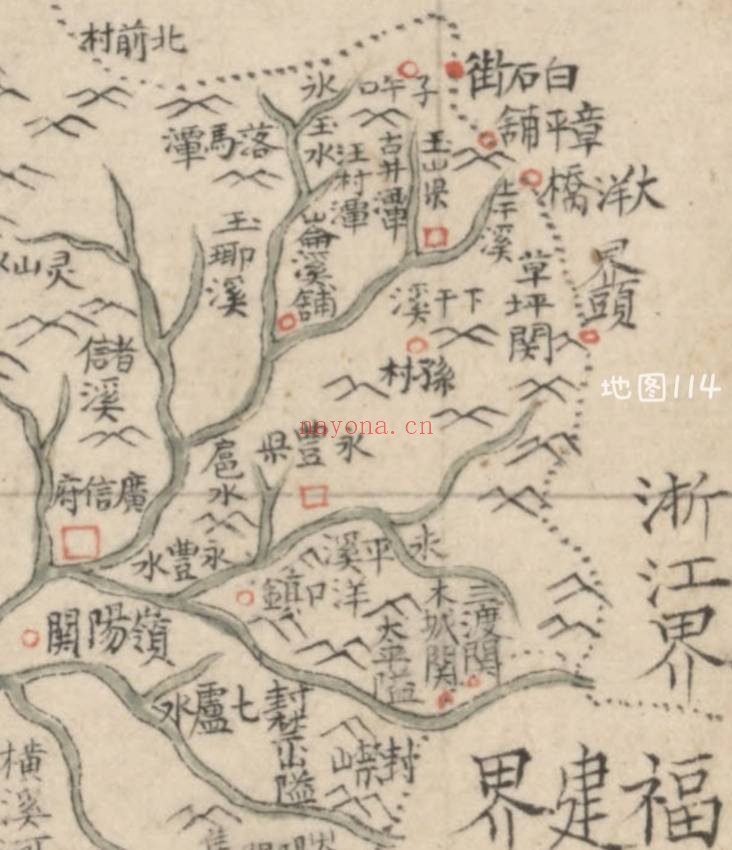 北前村
白石街
子午口
章平舖
大洋橋
界頭
草坪関
玉山県
古井潭
汪村潭
玉水
氷
落馬潭
上干溪
下干溪
孫村
山侖溪舖
玉瑘溪
灵山
信溪
廣信府
永豐県
扈水
永豐水
永平溪
洋口鎮
三渡関
木城関
太平隘
嶺陽関
七廬水
封禁山隘
封禁山
横溪
浙江界
福建界
地图114
nayona.cn